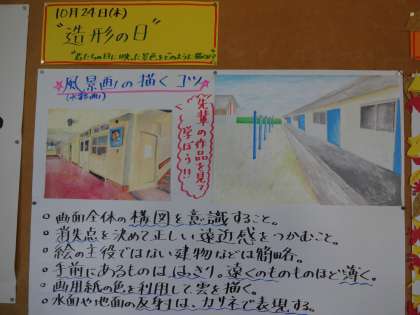 10月24日(木)
"造形の日"
風景画の描くコツ
(水彩画)
先輩の作品を見て
学ぼう!!
画面全体の構図を意識すること。
消失点を決めて正しい遠近感をつかむこと。
絵の主役ではない建物などは簡略。
手前にあるものははっきり。遠くのものほど薄く。
画用紙の色を利用して雲を描く。
水面や地面の反射は、カサネで表現する。